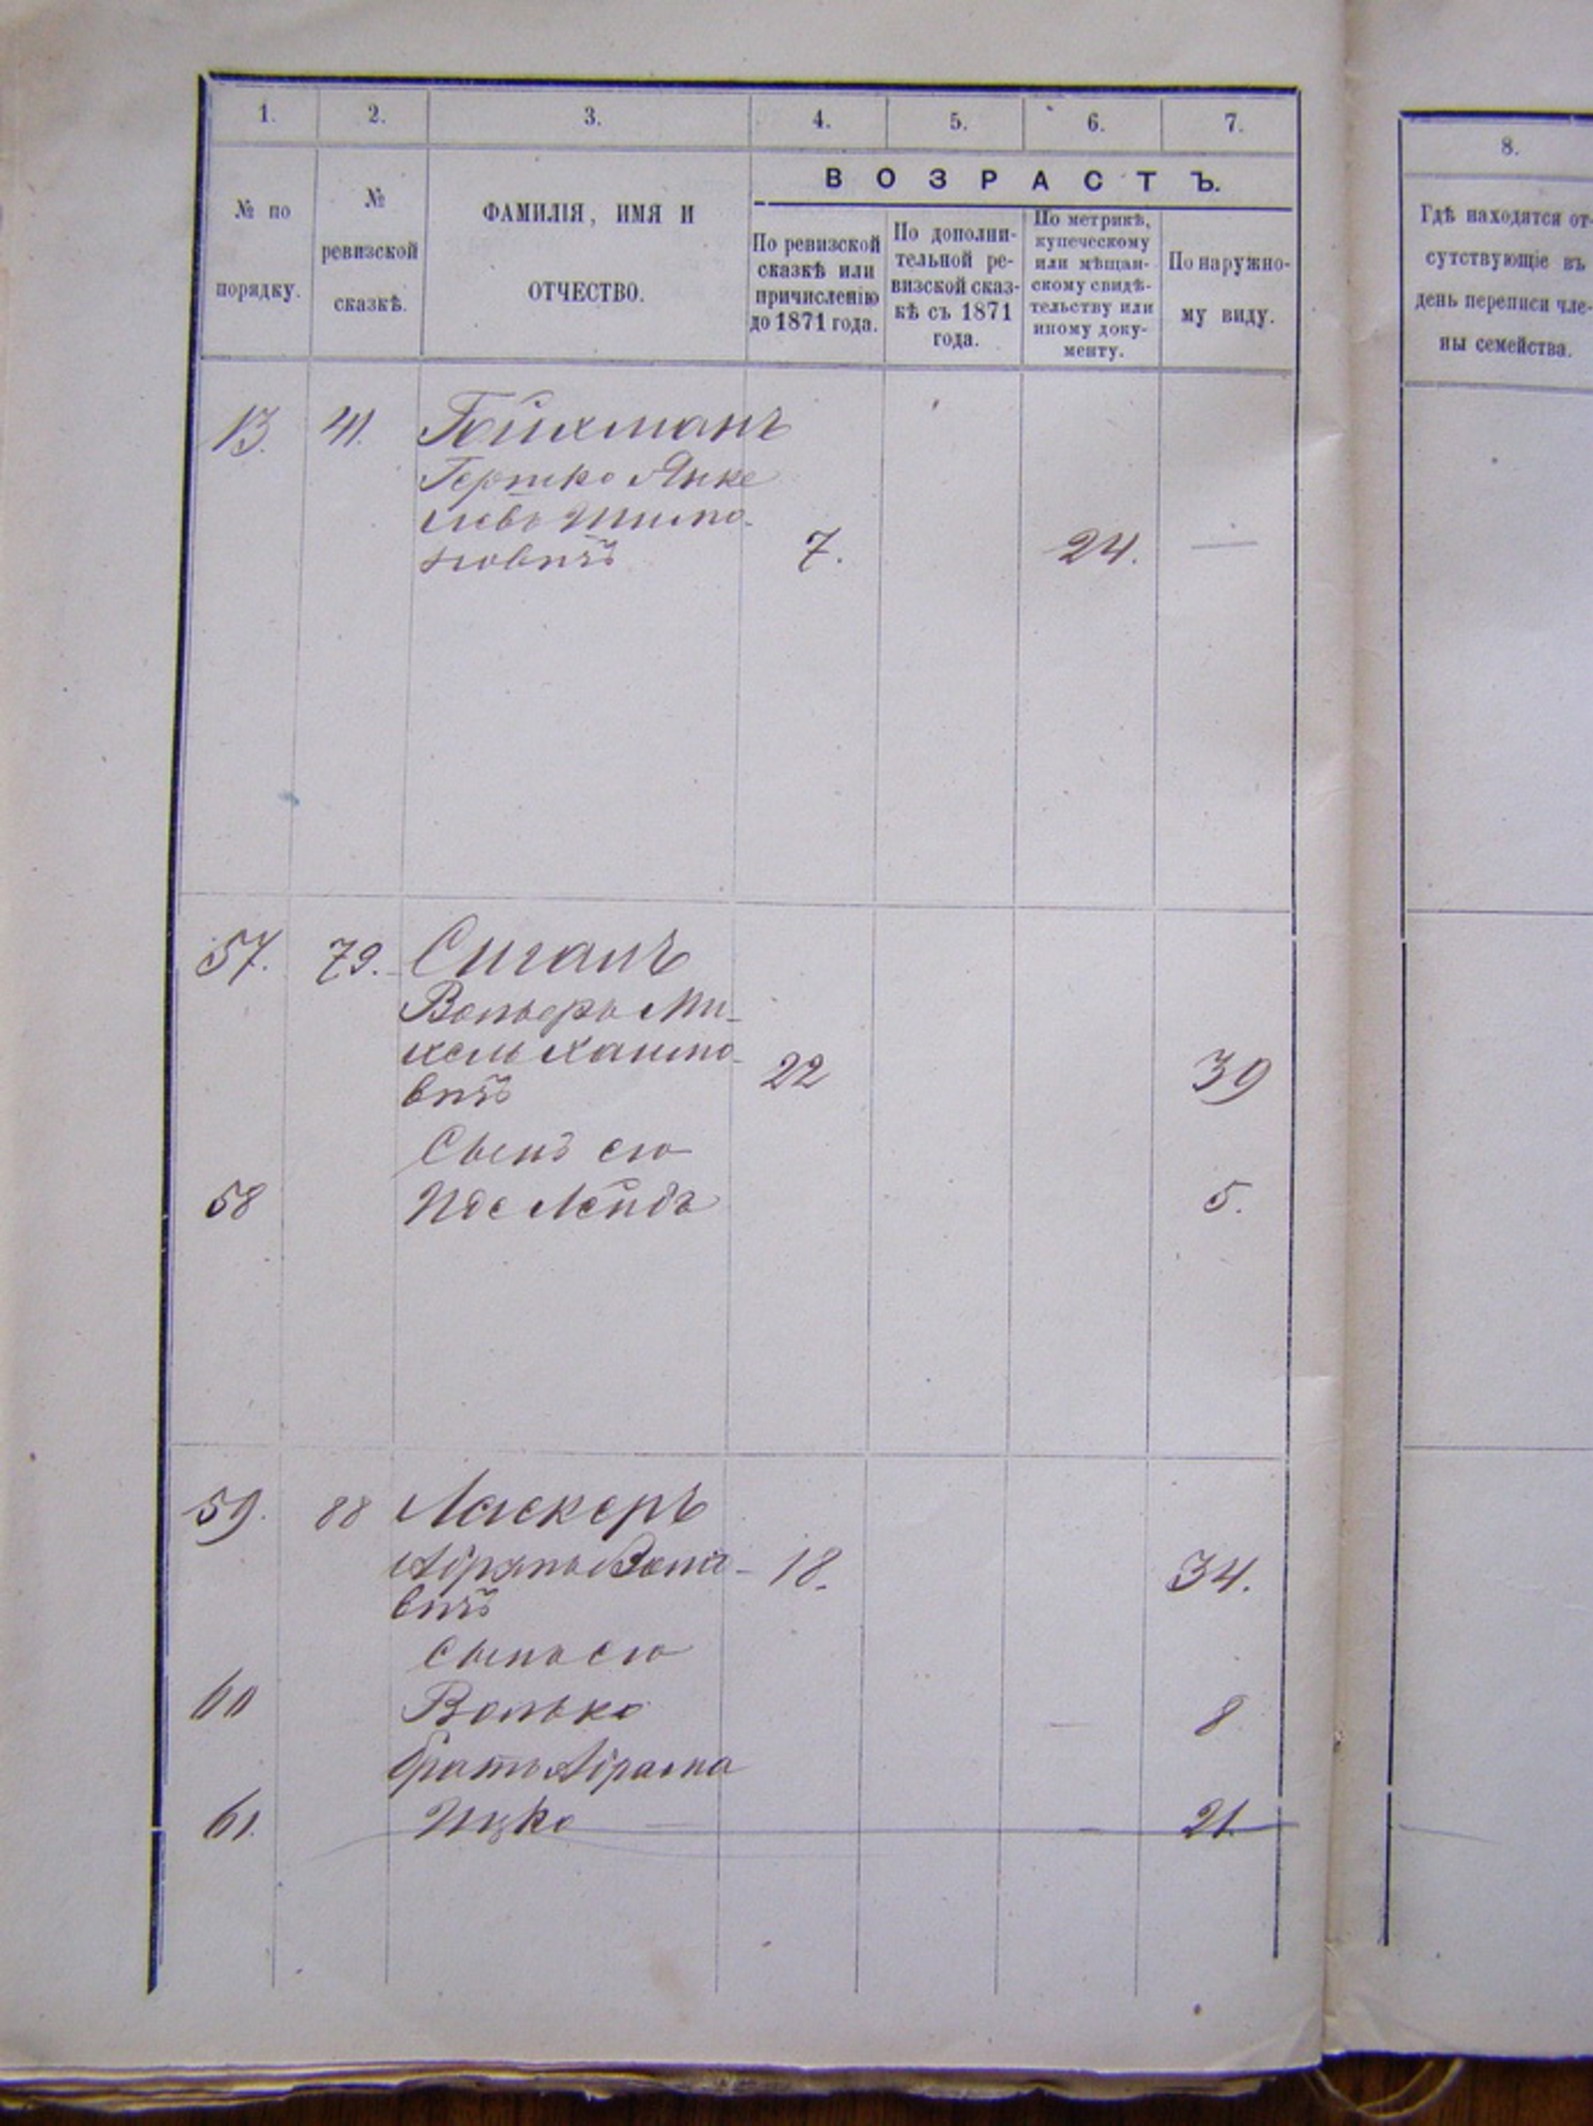 1. 2. 3. 4. 5. 6. 7.
№ по порядку.
№ ревизской сказкѣ.
ФАМИЛІЯ, ИМЯ И ОТЧЕСТВО.
ВОЗРАСТЪ.
По ревизской сказкѣ или причисленію до 1871 года.
По дополнительной ревизской сказкѣ съ 1871 года.
По метрикѣ, купеческому или мѣщанскому свидѣтельству или иному документу.
По наружному виду.
13. 41. Гойхманъ
Гершко Янке
левъ Шимо-
новичъ 7. 24. —
57. 79. Сигалъ
Вольфъ Ми-
хель Хаимо-
вичъ 22 39
Сынъ его
58 Иде Лейбъ 5.
59. 88 Ласкеръ
Абрамъ 18. 34.
вичъ
Сынъ его
60 Волько 8
братъ Абрама
61. Ицко 21.
8.
Гдѣ находятся от-
сутствующіе въ
день переписи чле-
ны семейства.